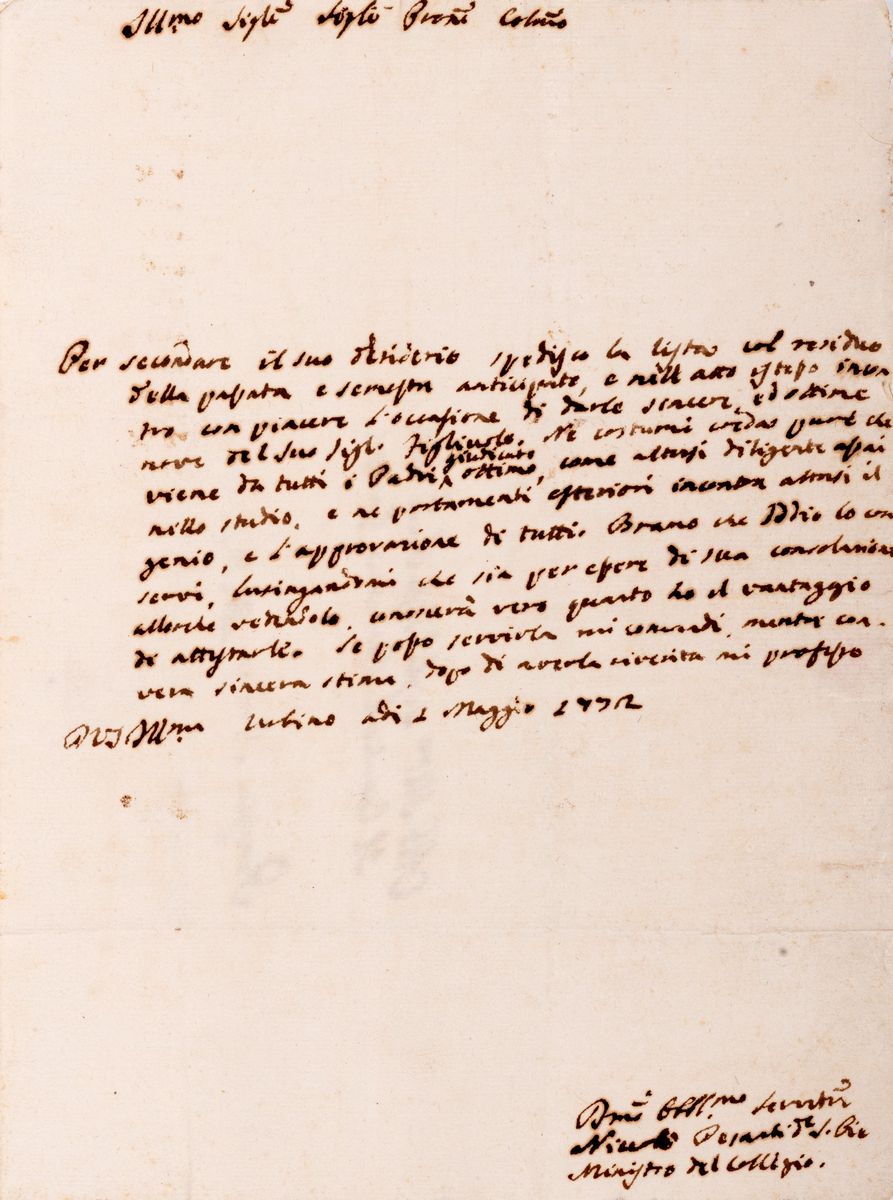 Ill.mo Sigle Sigle Prone Colmo
Per secondare il suo desiderio spedisco la lista col residuo
della passata e semestra anticipato, e nell'atto istesso incon
tro con piacere l'occasione di darle sincere, ed ottime
nove del suo Sigl. Figliuolo. Ne costumi credo pure che
viene da tutti i Padri giudicato ottimo, come altresi diligente assai
nello studio, e ne portamenti esteriori incontra altresi il
genio, e l'approvazione di tutti. Bramo che Iddio lo con
servi, lusingandomi che sia per essere di sua consolazione
allorche vedendolo, conoscerà vero quanto ho il vantaggio
di attestarle. Se posso servirla mi comandi, mentre con
vera sincera stima, dopo di averla riverita mi professo
DVS Ill.ma Urbino adi 1 Maggio 1772
Dmo Obbl.mo Servitre
Niccolò Pesanti de S. Pie
Ministro del Collegio.